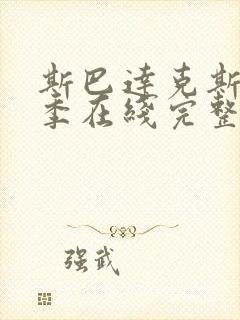 斯巴達克斯
季在綫完整
强武